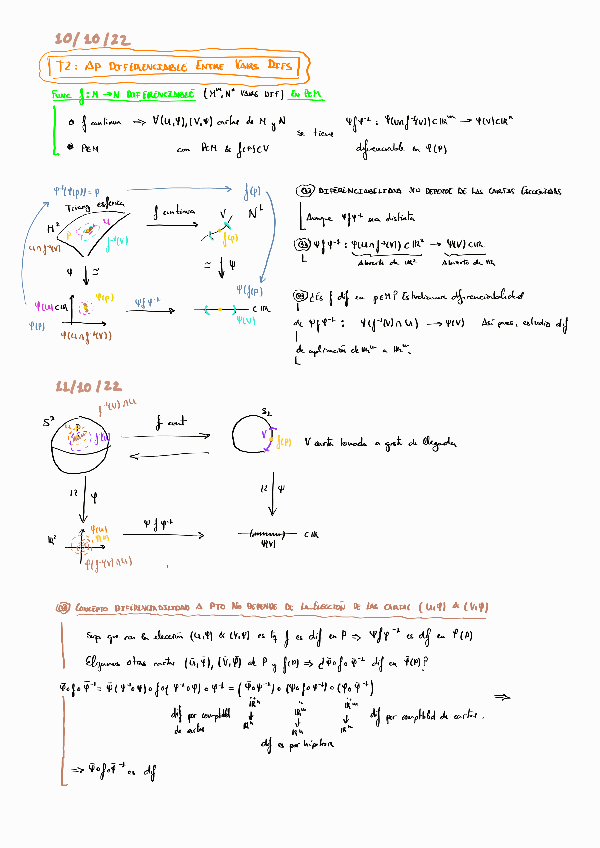 10/10/22
T2: AP DIFERENCIABLE ENTRE VARS DIFS
FUNC f: M → N DIFERENCIABLE (Mᵐ, Nⁿ VARS DIF) EN P∈M
f continua ⟹ ∀(U,φ), (V,ψ) cartas de M y N se tiene ψfφ⁻¹: φ(U∩f⁻¹(V))⊂ℝᵐ → ψ(V)⊂ℝⁿ
P∈M con P∈U & f(P)∈V diferenciable en φ(P)
φ⁻¹(φ(p)) = p
f(p)
Triang esférica
f continua
V
N¹
M²
U
P
f(p)
U∩f⁻¹(V)
f⁻¹(V)
φ ≃
≃ ψ
ψ(f(p))
φ(U)⊂ℝ
φ(p)
ψfφ⁻¹
⊂ ℝ
φ(P)
φ(U∩f⁻¹(V))
ψ(V)
DIFERENCIABILIDAD NO DEPENDE DE LAS CARTAS ESCOGIDAS
Aunque ψfφ⁻¹ sea distinta
ψfφ⁻¹: φ(U∩f⁻¹(V))⊂ℝ² → ψ(V)⊂ℝ
Abierto de ℝ² Abierto de ℝ
¿Es f dif en p∈M? Estudiamos diferenciabilidad
de ψfφ⁻¹: φ(f⁻¹(V)∩U) → ψ(V) Así pues, estudio dif
de aplicación de ℝᵐ a ℝⁿ.
11/10/22
f⁻¹(V)∩U
S²
f cont
S₁
V
f(P)
V carta tomada a gusto de llegada
φ
ψ
ℝ²
φ(U)
ψfφ⁻¹
⊂ ℝ
ψ(V)
φ(f⁻¹(V)∩U)
CONCEPTO DIFERENCIABILIDAD A PTO NO DEPENDE DE LA ELECCIÓN DE LAS CARTAS (U,φ) & (V,ψ)
Sup que con la elección (U,φ) & (V,ψ) es tq f es dif en P ⟹ ψfφ⁻¹ es dif en φ(P)
Elijamos otras cartas (Ū,φ̄), (V̄,ψ̄) de P y f(P) ⟹ ¿ψ̄∘f∘φ̄⁻¹ dif en φ̄(P)?
ψ̄∘f∘φ̄⁻¹ = ψ̄(ψ⁻¹∘ψ)∘f∘(φ⁻¹∘φ)∘φ̄⁻¹ = (ψ̄∘ψ⁻¹)∘(ψ∘f∘φ⁻¹)∘(φ∘φ̄⁻¹)
⟹
dif por compatbld de cartas
ℝⁿ ↓ ℝⁿ
ℝᵐ ↓ ℝⁿ
ℝᵐ ↓ ℝᵐ
dif por compatbld de cartas.
dif es por hipótesis
⟹ ψ̄∘f∘φ̄⁻¹ es dif